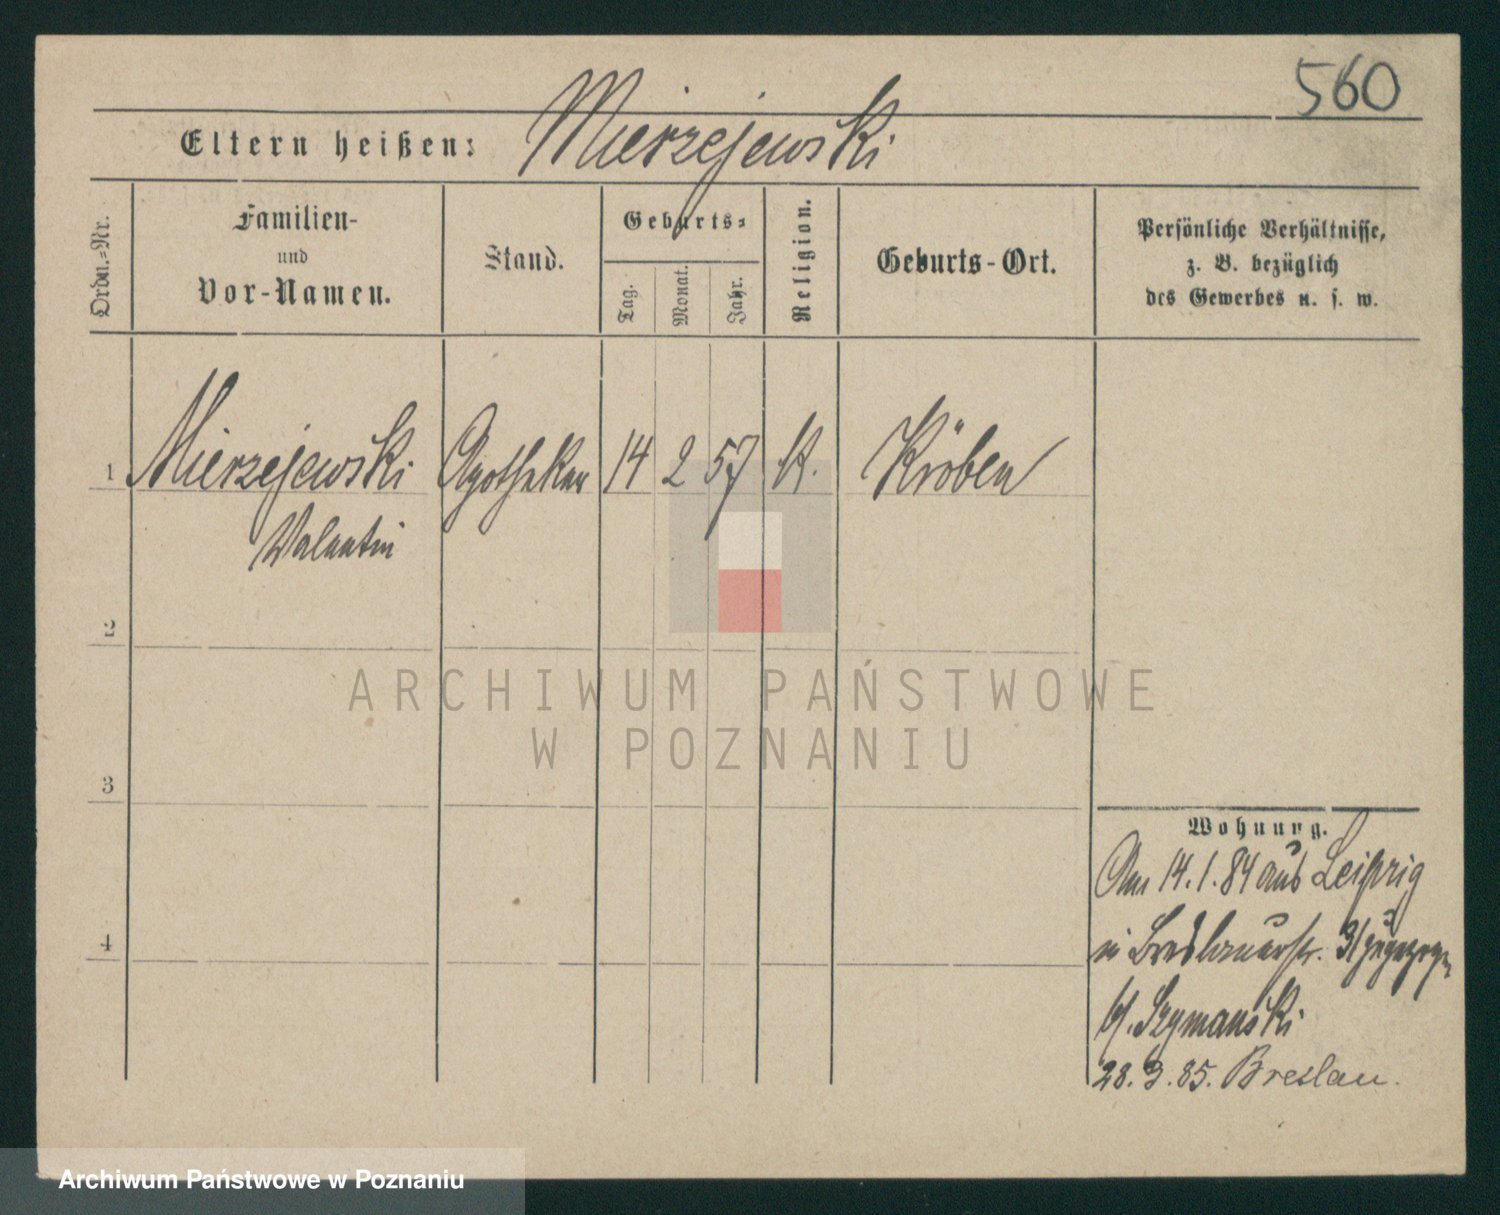 560
Eltern heißen: Mierzejewski
Ordn.=Nr.
Familien-
und
Vor-Namen.
Stand.
Geburts=
Tag.
Monat.
Jahr.
Religion.
Geburts-Ort.
Persönliche Verhältnisse,
z. B. bezüglich
des Gewerbes u. s. w.
1 Mierzejewski Apotheker 14 2 57 k. Kröben
Valentin
2
3
4
Wohnung.
Am 14.1.84 aus Leipzig
in Breslauerstr. 31 zugezogen
b/. Szymanski
28.3.85. Breslau.
ARCHIWUM PAŃSTWOWE
W POZNANIU
Archiwum Państwowe w Poznaniu